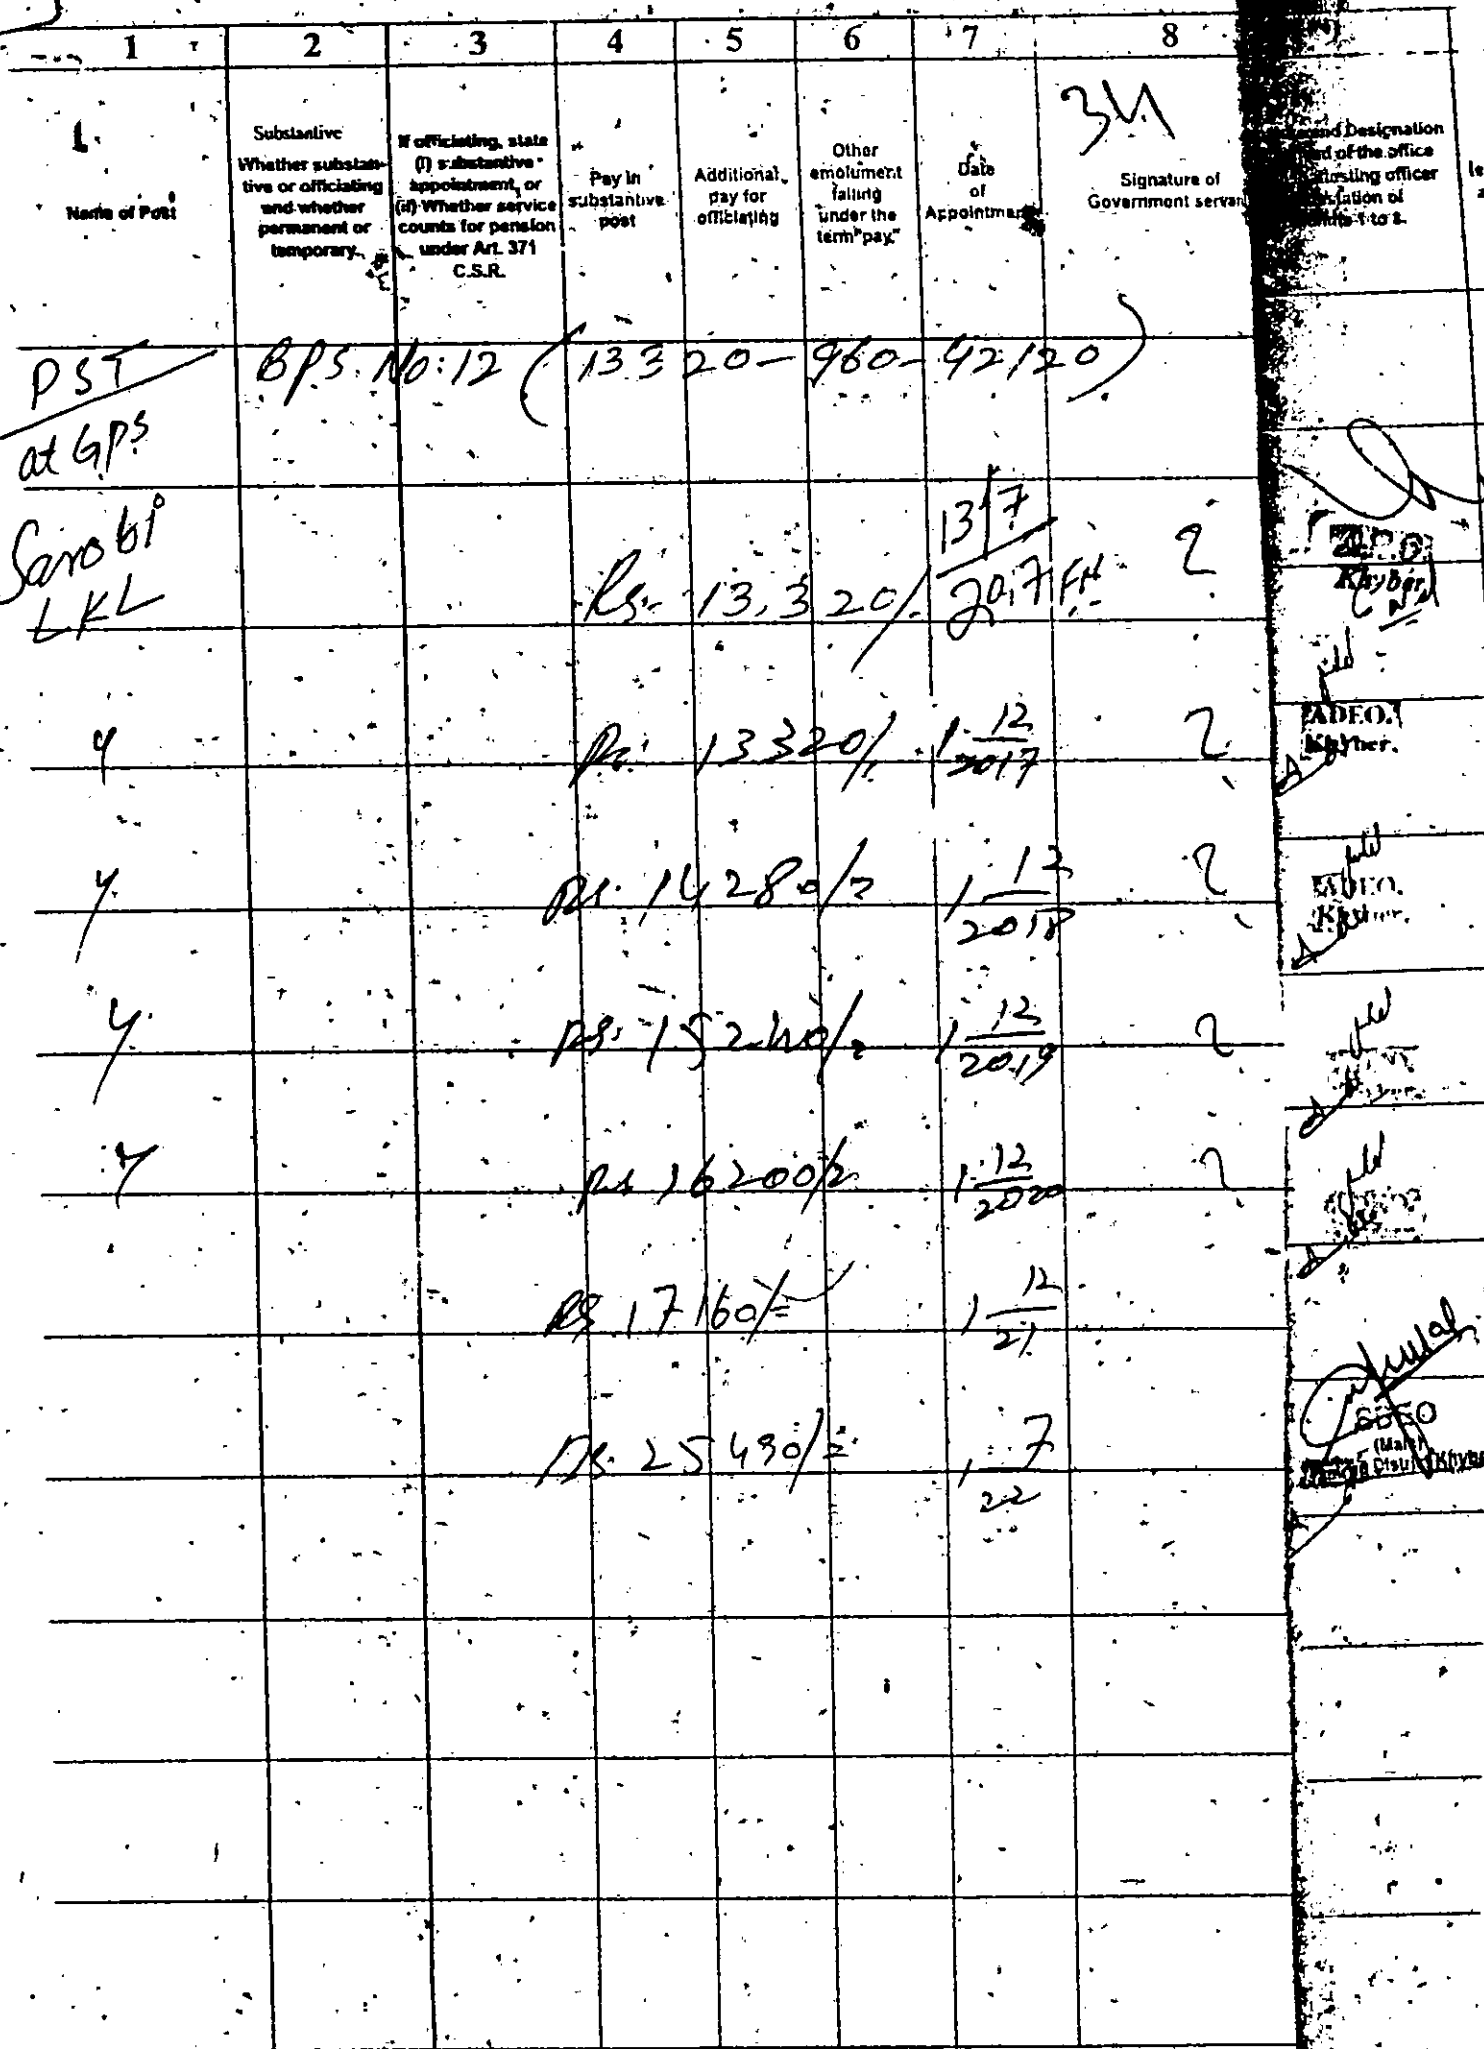 1 2 3 4 5 6 7 8
Name of Post
Substantive
Whether substan-
tive or officiating
and whether
permanent or
temporary.
If officiating, state
(i) substantive
appointment, or
(ii) Whether service
counts for pension
under Art. 371
C.S.R.
Pay in
substantive
post
Additional
pay for
officiating
Other
emolument
falling
under the
term "pay."
Date
of
Appointment
Signature of
Government servan
and Designation
of the office
officer
1 to 8.
PST BPS. No:12 (13320-960-42120)
at GPS
Sarobi
LKL
Rs. 13,320/. 13/7 2017 FN
Khyber
Rs. 13320/. 1 12/2017
ADEO.
Khyber.
Rs. 14280/= 1 12/2018
ADEO.
Rs. 15240/= 1 12/2019
Rs 16200/= 1 12/2020
Rs 17160/= 1 12/21
Rs. 25430/= 1 7/22
(Male)
Khyber